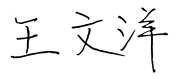 王文洋